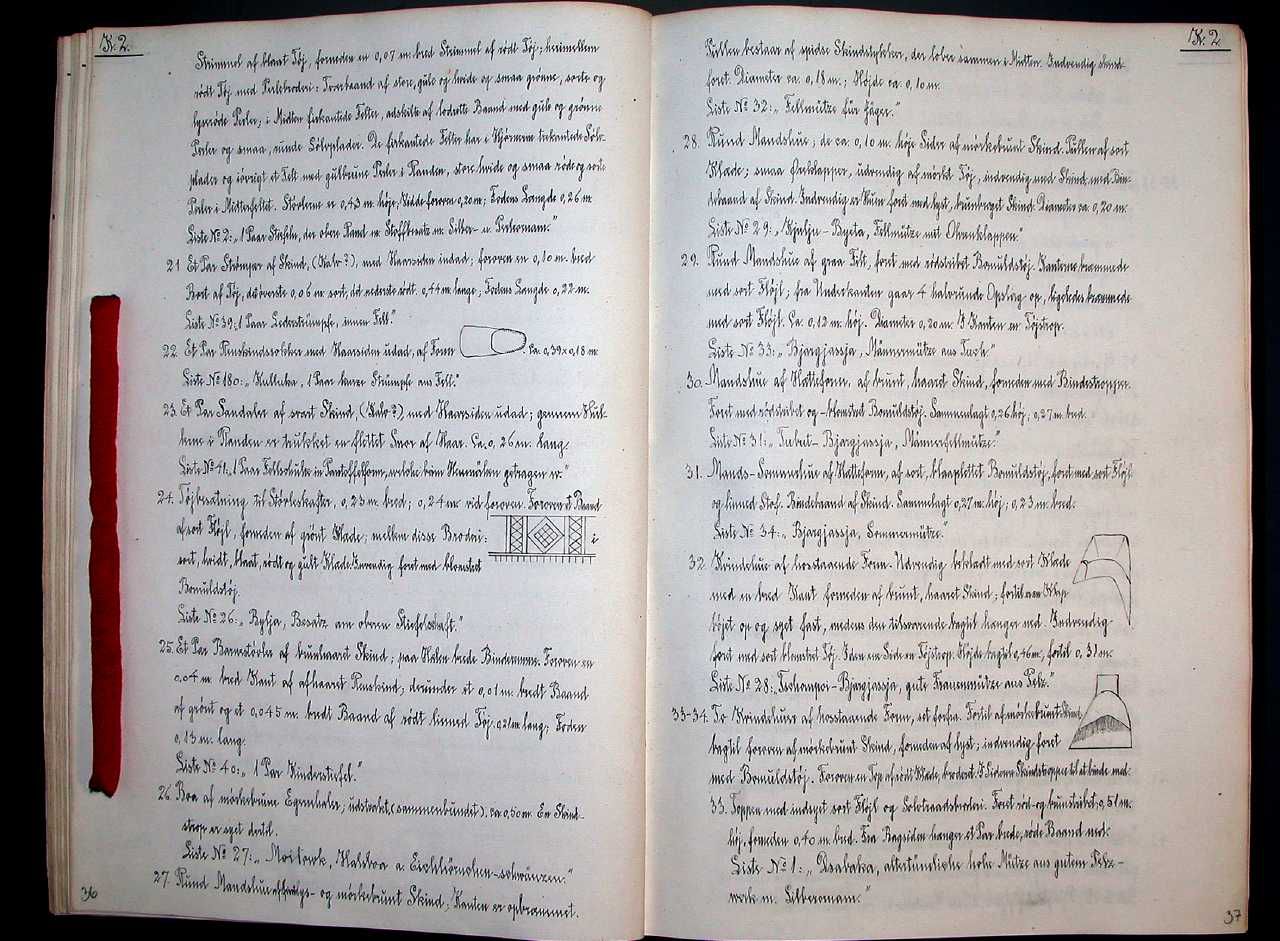 K. 2.
Strimmel af blaat Tøj, forneden en 0,07 m. bred Strimmel af rødt Tøj; herimellem
rødt Tøj med Perlebroderi: Tværbaand af store, gule og hvide og smaa grønne, sorte og
lyserøde Perler; i Midten firkantede Felter, adskilte af lodrette Baand med gule og grønne
Perler og smaa, runde Sølvplader. De firkantede Felter har i Hjørnerne trekantede Sølv-
plader og iøvrigt et Felt med gulbrune Perler i Randen, store hvide og smaa røde og sorte
Perler i Midterfeltet. Støvlerne er 0,43 m. høje, Vidde foroven 0,20 m; Fodens Længde 0,26 m.
Liste № 2: „1 Paar Stiefeln, der obere Rand m. Stoffbesatz m. Silber- u. Perlornam."
21. Et Par Strømper af Skind, (Kalv?), med Haarsiden indad; foroven en 0,10 m. bred
Bort af Tøj, det øverste 0,06 m. sort, det nederste rødt. 0,44 m. lange; Fodens Længde 0,22 m.
Liste № 39: „1 Paar Lederstrümpfe, innen Fell."
22. Et Par Renskindssokker med Haarsiden udad, af Form . Ca. 0,39×0,18 m.
Liste № 180: „Kulluka, 1 Paar kurze Strümpfe aus Fell."
23. Et Par Sandaler af svært Skind, (Kalv?), med Haarsiden udad; gennem Hul-
lerne i Randen er trukket en flettet Snor af Haar. Ca. 0,26 m. lang.
Liste № 41: „1 Paar Fellschuhe in Pantoffelform, welche beim Heumähen getragen w."
24. Tøjbesætning til Støvleskafter, 0,23 m. bred; 0,24 m. vid foroven. Foroven et Baand
af sort Fløjl, forneden af grønt Klæde; mellem disse Broderi: i
sort, hvidt, blaat, rødt og gult Klæde. Indvendig foret med blomstret
Bomuldstøj.
Liste № 26: „Bylja, Besatz am oberen Stiefelschaft."
25. Et Par Barnestøvler af brunhaaret Skind; paa Hælen brede Binderemme. Foroven en
0,04 m. bred Kant af afhaaret Renskind; derunder et 0,01 m. bredt Baand
af grønt og et 0,045 m. bredt Baand af rødt linned Tøj. 0,21 m. lang; Foden
0,13 m. lang.
Liste № 40: „1 Par Kinderstiefel."
26. Boa af mørkebrune Egernhaler; udstrakt, (sammenbundet), ca. 0,50 m. En Skind-
strop er syet dertil.
Liste № 27: „ Halsboa a. Eichhörnchen-schwänzen."
27. Rund Mandshue af lys- og mørkebrunt Skind; Kanten er opbræmmet.
36
K. 2
Pullen bestaar af spidse Skindstykker, der løber sammen i Midten. Indvendig skind-
foret. Diameter ca. 0,18 m.; Højde ca. 0,10 m.
Liste № 32: „Fellmütze für Jäger."
28. Rund Mandshue; de ca. 0,10 m. høje Sider af mørkebrunt Skind. Pullen af sort
Klæde; smaa Øreklapper, udvendig af mørkt Tøj, indvendig med Skind, med Bin-
debaand af Skind. Indvendig er Huen foret med lyst, brunbroget Skind. Diameter ca. 0,20 m.
Liste № 29: „Kjulju-Byeta, Fellmütze mit Ohrenklappen."
29. Rund Mandshue af graa Filt, foret med rødstribet Bomuldstøj. Kanterne bræmmede
med sort Fløjl; fra Underkanten gaar 4 halvrunde Opslag op, ligeledes bræmmede
med sort Fløjl. Ca. 0,12 m. høj. Diameter 0,20 m. I Kanten en Tøjstrop.
Liste № 33: „Bjargjassja, Männermütze aus Tuch."
30. Mandshue af Hætteform, af brunt, haaret Skind, forneden med Bindestropper.
Foret med rødstribet og -blomstret Bomuldstøj. Sammenlagt 0,26 høj; 0,27 m. bred.
Liste № 31: „Tubut-Bjargjassja, Männerfellmütze."
31. Mands-Sommerhue af Hætteform, af sort, blaaplettet Bomuldstøj, foret med sort Fløjl
og linned Stof. Bindebaand af Skind. Sammenlagt 0,27 m. høj; 0,23 m. bred.
Liste № 34: „Bjargjassja, Sommermütze."
32. Kvindehue af hosstaaende Form. Udvendig beklædt med sort Klæde
med en bred Kant forneden af brunt, haaret Skind; fortil er en Klap
bøjet op og syet fast, medens den tilsvarende bagtil hænger ned. Indvendig
foret med sort blomstret Tøj. I den ene Side en Tøjstrop. Højde bagtil 0,46 m., fortil 0,31 m.
Liste № 28: „Tschompoi-Bjargjassja, gute Frauenmütze aus Pelz."
33-34. To Kvindehuer af hosstaaende Form, set forfra. Fortil af mørkebrunt Skind,
bagtil foroven af mørkebrunt Skind, forneden af lyst; indvendig foret
med Bomuldstøj. Foroven en Top af rødt Klæde, broderet. I Siderne Skindstropper til at binde med.
33. Toppen med indsyet sort Fløjl og Sølvtraadsbroderi. Foret rød- og brunstribet; 0,51 m.
høj, forneden 0,40 m. bred. Fra Bagsiden hænger et Par brede, røde Baand ned.
Liste № 1: „ altertümliche hohe Mütze aus gutem Pelz-
werk m. Silberornam."
37